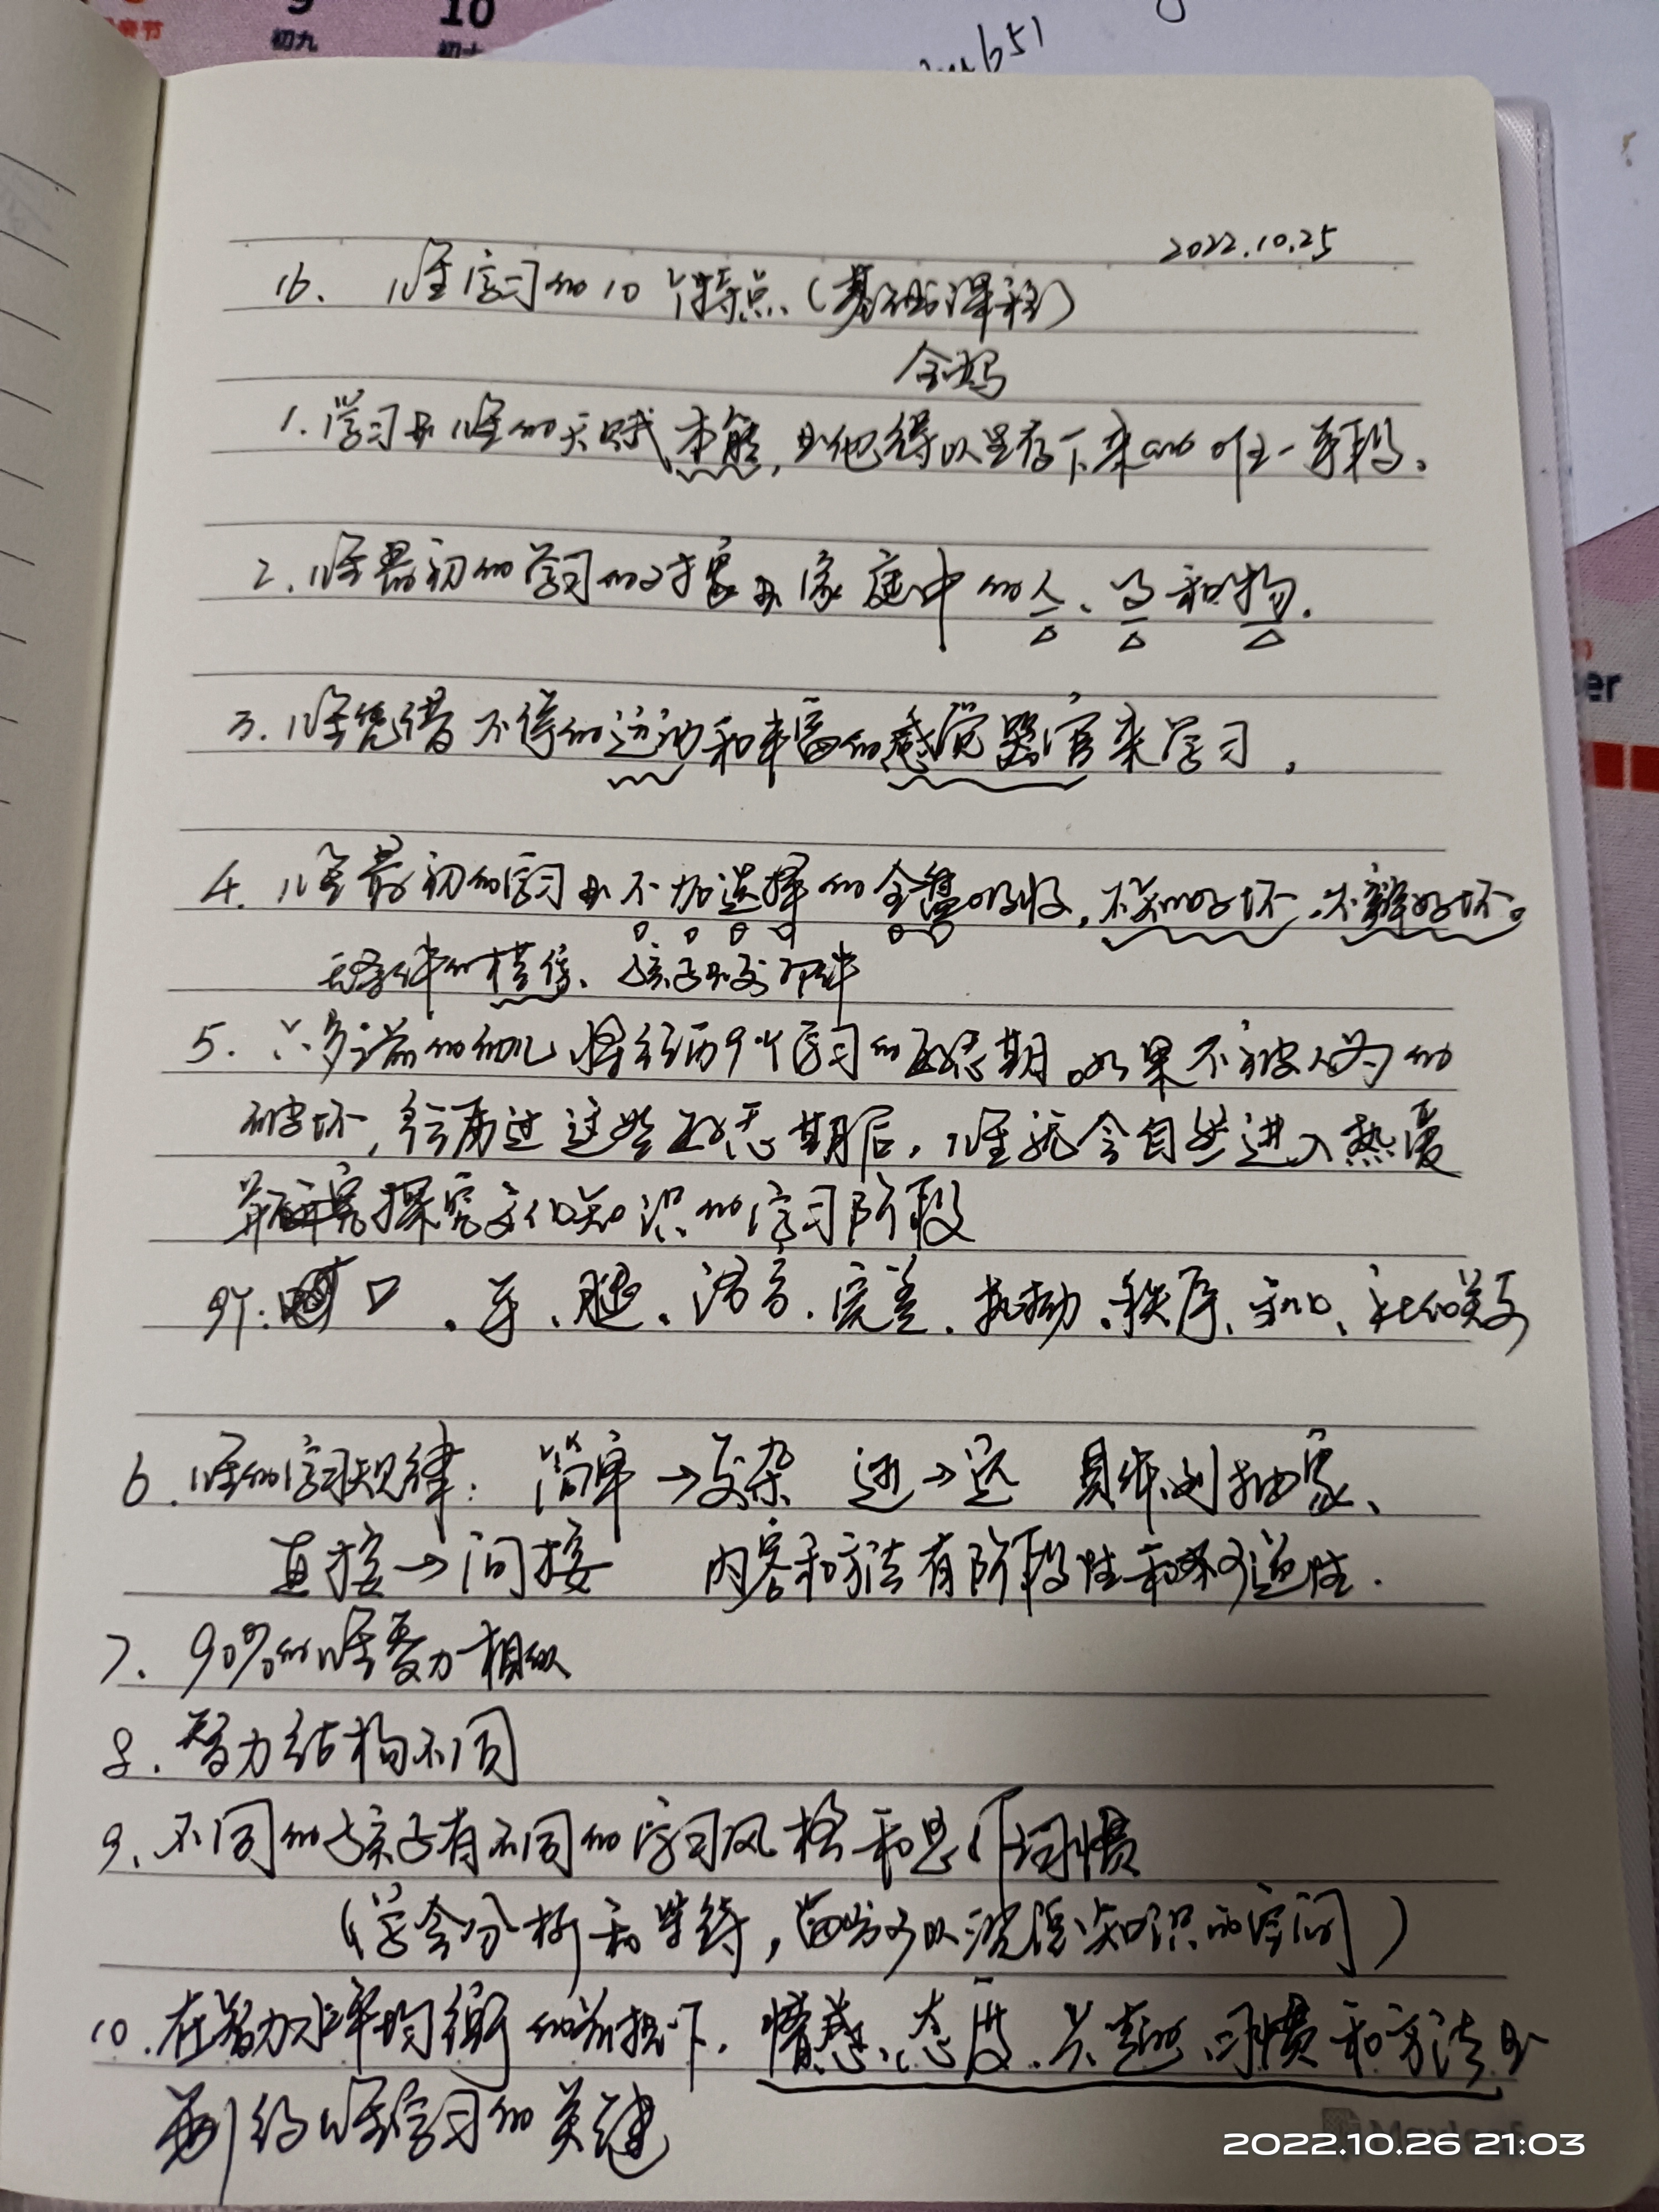 9
初九
10
2022.10.25
16. 儿童学习的10个特点(基础课程)
全妈
1.学习是儿童的天赋本能,是他得以生存下来的唯一手段。
2.儿童最初的学习的对象是家庭中的人、事和物.
3.儿童凭借不停的运动和丰富的感觉器官来学习.
4.儿童最初的学习是不加选择的全盘吸收,不关心好坏.不辨好坏。
无条件的模仿、孩子是复印件
5.六岁之前的幼儿将经历9个学习的敏感期。如果不被人为的
破坏,经历过这些敏感期后,儿童就会自然进入热爱
并探究文化知识的学习阶段
9个: 口、手、腿、语言.完美、执拗、秩序、社会关系
6.儿童的学习规律:简单→复杂 近→远 具体到抽象、
直接→间接 内容和方法有阶段性和不可逆性.
7.90%的儿童智力相似
8.智力结构不同
9.不同的孩子有不同的学习风格和思维习惯
(学会分析和等待,留出可以沉淀知识的空间)
10.在智力水平均衡的前提下.情感、态度.兴趣.习惯和方法是
制约儿童学习的关键
2022.10.26 21:03